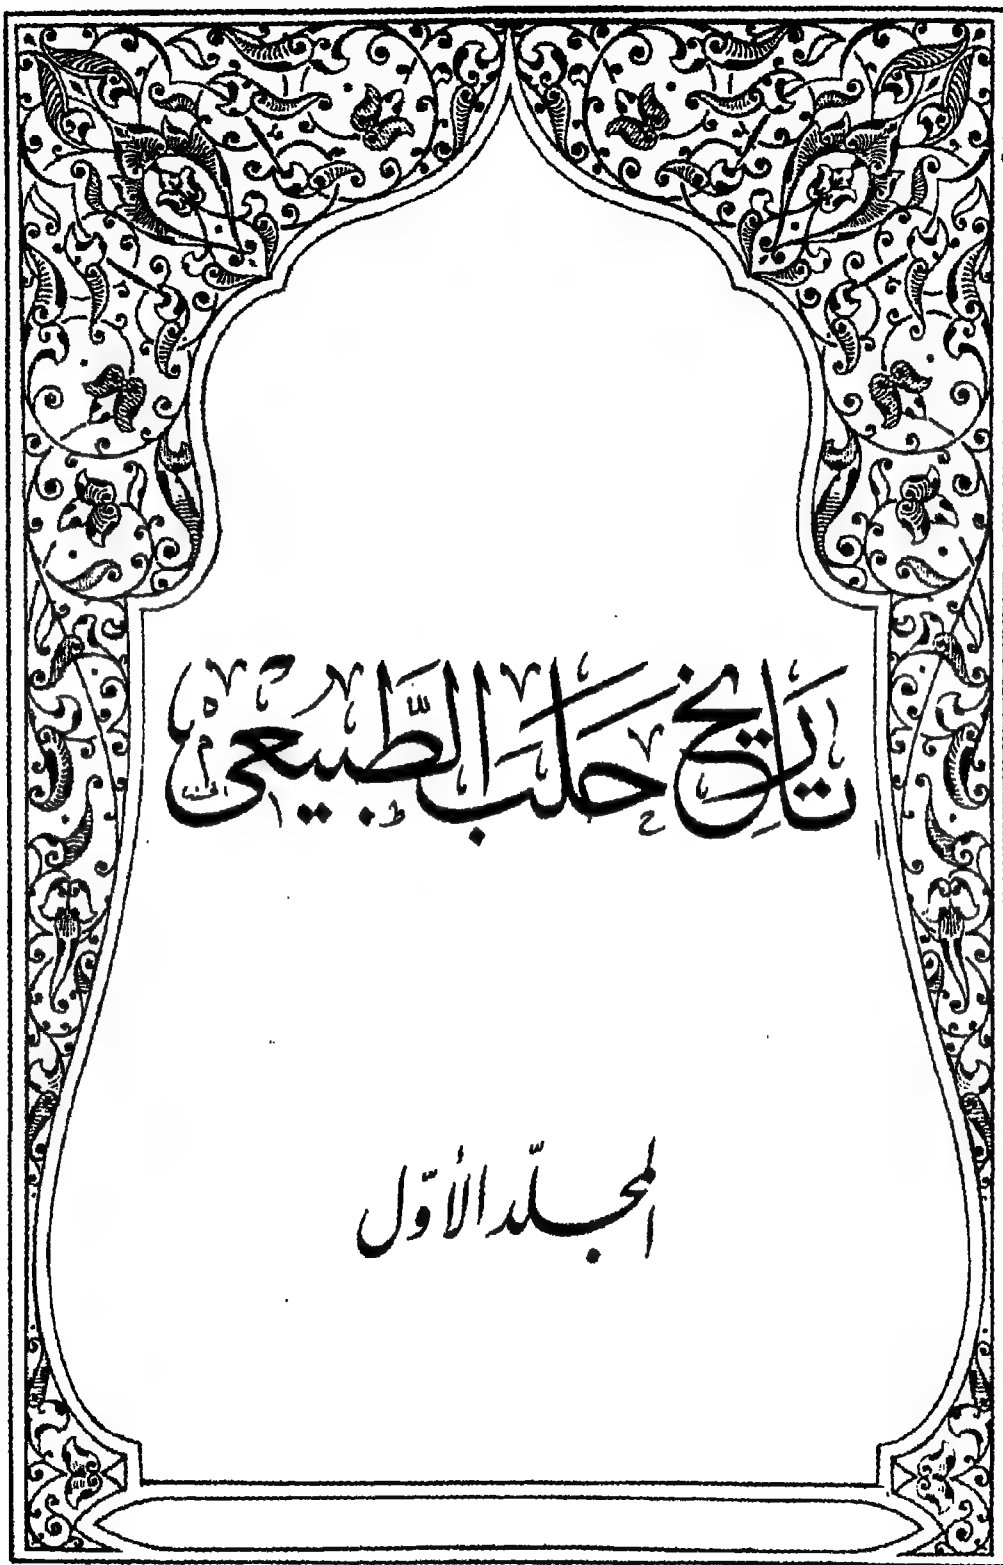 تاريخ حلب الطَّبيعي
المجلّد الأوّل